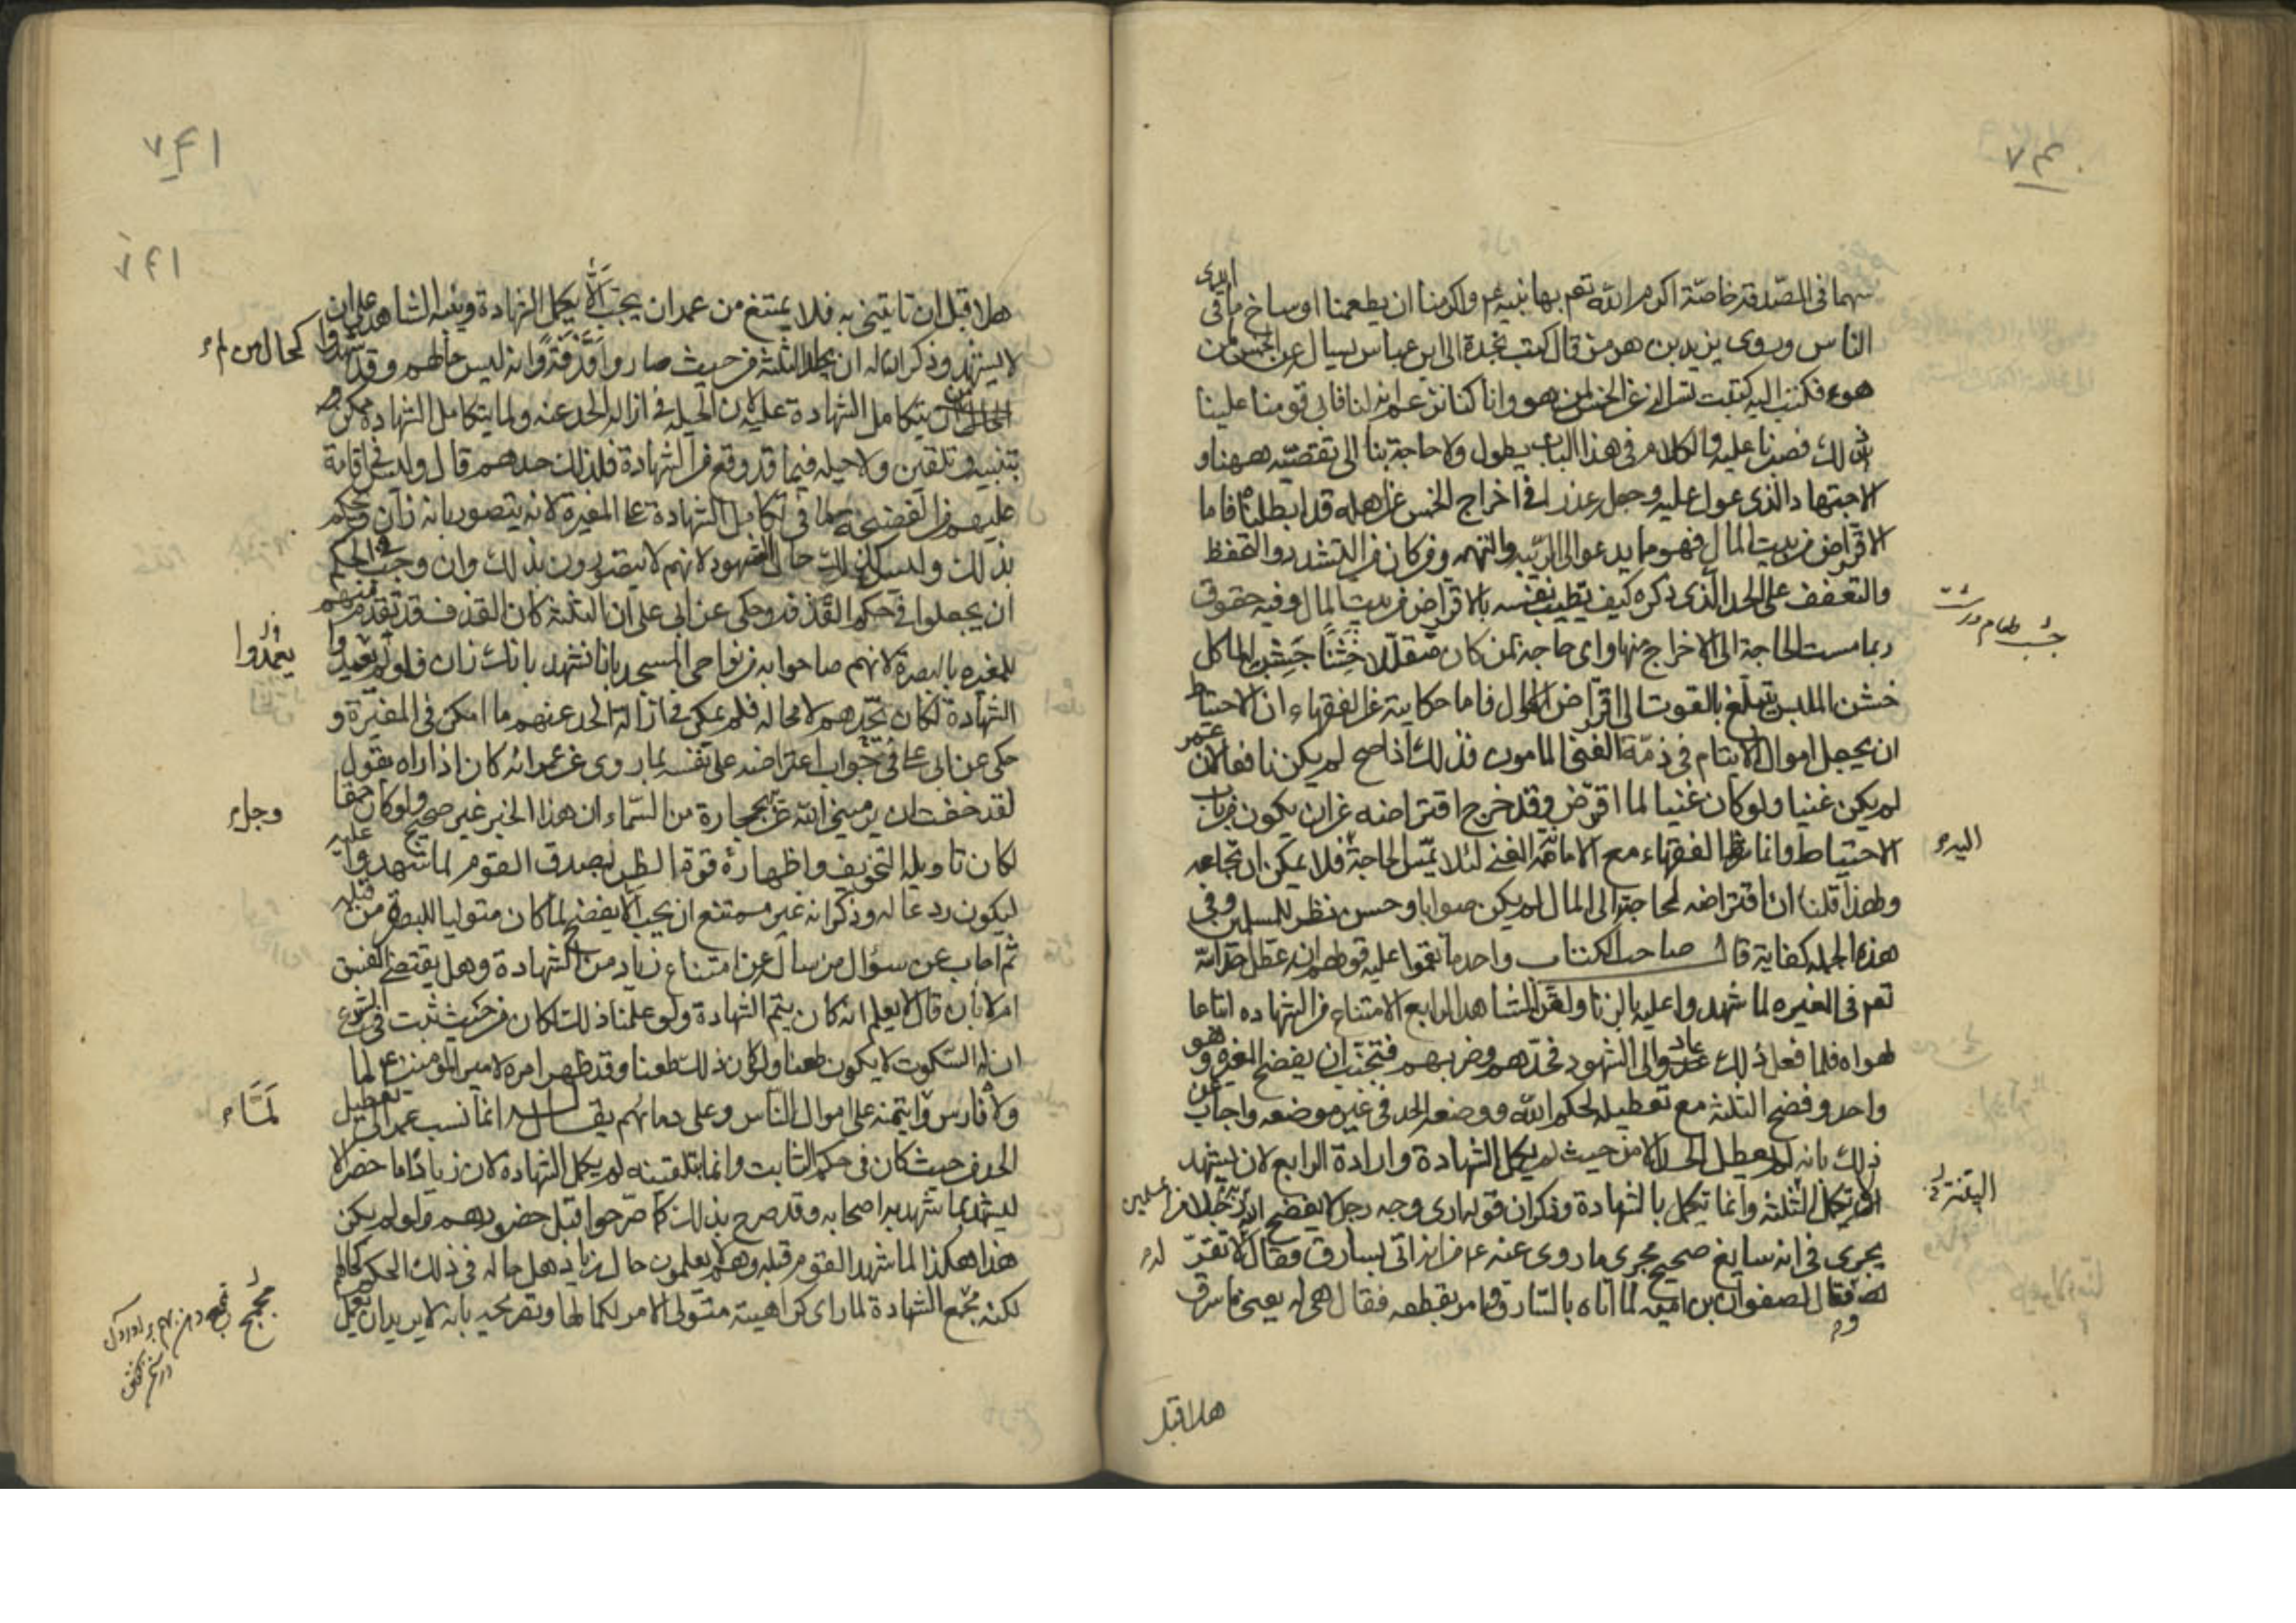 ٧٤٠
سهما فى الصّدقة خاصّة اكرم الله تعم بها نبيه ع م واكرمنا ان يطعمنا اوساخ ما فى ايدى
الناس وروى يزيد بن هرمز قال كتب نجدة الى ابن عباس يسال عن الخمس لمن
هو ع فكتب اليه كتبت تسالنى عن الخمس لمن هو وانا كنا نزعم انه لنا فابى قومنا علينا
ذلك فصبرنا عليه والكلام فى هذا الباب يطول ولا حاجة بنا الى تقصّيه ههنا و
الاجتهاد الذى عول عليه وجعل عذرا فى اخراج الخمس عن اهله قد ابطلناه فاما
الاقراض من بيت المال فهو مما يدعو الى الريبه والتهمه ومن كان من التشدد والتحفظ
والتعفف على الحد الذى ذكره كيف تطيب نفسه بالاقراض من بيت المال وفيه حقوق
ربما مست الحاجة الى الاخراج منها واى حاجة لمن كان متقللا خشنا جشب الماكل
خشن الملبس يتبلّغ بالقوت الى اقتراض الاموال فاما حكايته عن الفقهاء ان الاحتياط
ان يجعل اموال الايتام فى ذمّة الغنى المامون فذلك اذا صح لم يكن نافعا لان عمر
لم يكن غنيا ولو كان غنيا لما اقترض وقد خرج اقتراضه عن ان يكون من باب
الاحتياط وانما شرط الفقهاء مع الامانة الغنى لئلا تمسّ الحاجة فلا يمكن ارتجاعه
ولهذا قلنا ان اقتراضه لحاجته الى المال لم يكن صوابا وحسن نظر للمسلمين وفى
هذه الجمله كفاية قال صاحب الكتاب واحد ما نقموا عليه قولهم انه عطل حد الله
تعم فى المغيره لما شهدوا عليه بالزنا ولقن الشاهد الرابع الامتناع من الشهاده اتباعا
لهواه فلما فعل ذلك عاد الى الشهود فحدّهم وضربهم فتجنّب ان يفضح المغيره وهو
واحد وفضح الثلثة مع تعطيله لحكم الله ووضعه الحد فى غير موضعه واجاب عن
ذلك بانه لم يعطل الحد الا من حيث لم يكمل الشهادة وارادة الرابع لان يشهد
لا تكمل الثلثة وانما تكمل بالشهادة وذكر ان قوله ارى وجه رجل لا يفضح الله به رجلا من المسلمين
يجرى فى انه سايغ صحيح مجرى ما روى عنه ع م من انه اتى بسارق فقال لا تقرّ
وقال لصفوان بن اميه لما اتاه بالسّارق وامر بقطعه فقال هى له يعنى ما سرق
هلا قبل
٧٤١
٧٤١
هلا قبل ان تاتينى به فلا يمتنع من عمر ان يحب الّا يكمل الشهادة وينبه الشاهد على ان
لا يشهد وذكر انه جلد الثلثة من حيث صاروا قذفة وانه ليس حالهم وقد شهدوا
كحال من لم يتكامل الشهادة عليه لان الحيله فى ازالة الحد عنه ولما يتكامل الشهادة ممكنه
بتنبيه وتلقين ولا حيله فيما قد وقع من الشهادة فلذلك حدهم قال وليس فى اقامة
عليهم من الفضيحة ما فى تكامل الشهادة على المغيرة لانه يتصور بانه زان ويحكم
بذلك وليس كذلك حال الشهود لانهم لا يتصورون بذلك وان وجب فى الحكم
ان يجعلوا فى حكم القذفة وحكى عن ابى على ان الثلثة كان القذف قد تقدم منهم
للمغيره بالبصرة لانهم صاحوا به من نواحى المسجد بانا نشهد بانك زان فلو لم يعيدوا
الشهادة لكان يحدّهم لا محاله فلم يمكن فى ازالة الحد عنهم ما امكن فى المغيرة و
حكى عن ابى على فى جواب اعتراضه على نفسه بما روى عن عمر انه كان اذا راه يقول
لقد خفت ان يرمينى الله عز وجل بحجارة من السّماء ان هذا الخبر غير صحيح ولو كان حقا
لكان تاويله التخويف واظهارة قوة الظن بصدق القوم لما شهدوا عليه
ليكون ردعا له وذكر انه غير ممتنع ان يحب الا يفضح لما كان متوليا للبصرة من قبله
ثم اجاب عن سؤال من سال عن امتناع زياد من الشهادة وهل يقتضى الفسق
ام لا بان قال لا يعلم انه كان يتم الشهادة ولو علمنا ذلك لكان من حيث ثبت فى الشرع
ان له السّكوت لا يكون طعنا ولو كان ذلك طعنا وقد ظهر امره لامير المؤمنين ع لما
ولّاه فارس وايتمنه على اموال النّاس وعلى دمائهم يقال له انما نسب عمر الى تعطيل
الحد من حيث كان فى حكم الثابت وانما بتلقينه لم يكمل الشهادة لان زيادا ما حضر الا
ليشهد بما شهد به اصحابه وقد صرح بذلك كما صرّحوا قبل حضورهم ولو لم يكن
هذا هكذا لما شهد القوم قبله وهم لا يعلمون حال زياد هل حاله فى ذلك الحكم كحالهم
لكنه مجمج الشهادة لما راى كراهية متولى الامر لكمالها وتصريحه بانه لا يريد ان يعمل